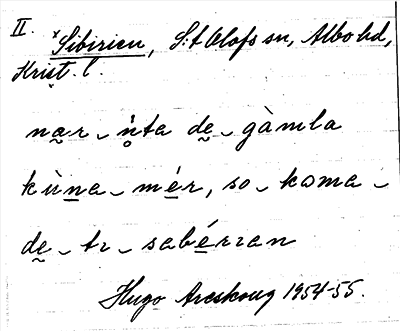 II. ˣSibirien, S:t Olofs sn, Albo hd,
Krist. l.
næ̰r ‿ ǹ̥ta dḛ ‿ gàmla
kùn̲a ‿ mé̲r, so ‿ koma ‿
dḛ ‿ tr ‿ sabé̲rran
Hugo Areskoug 1954-55.